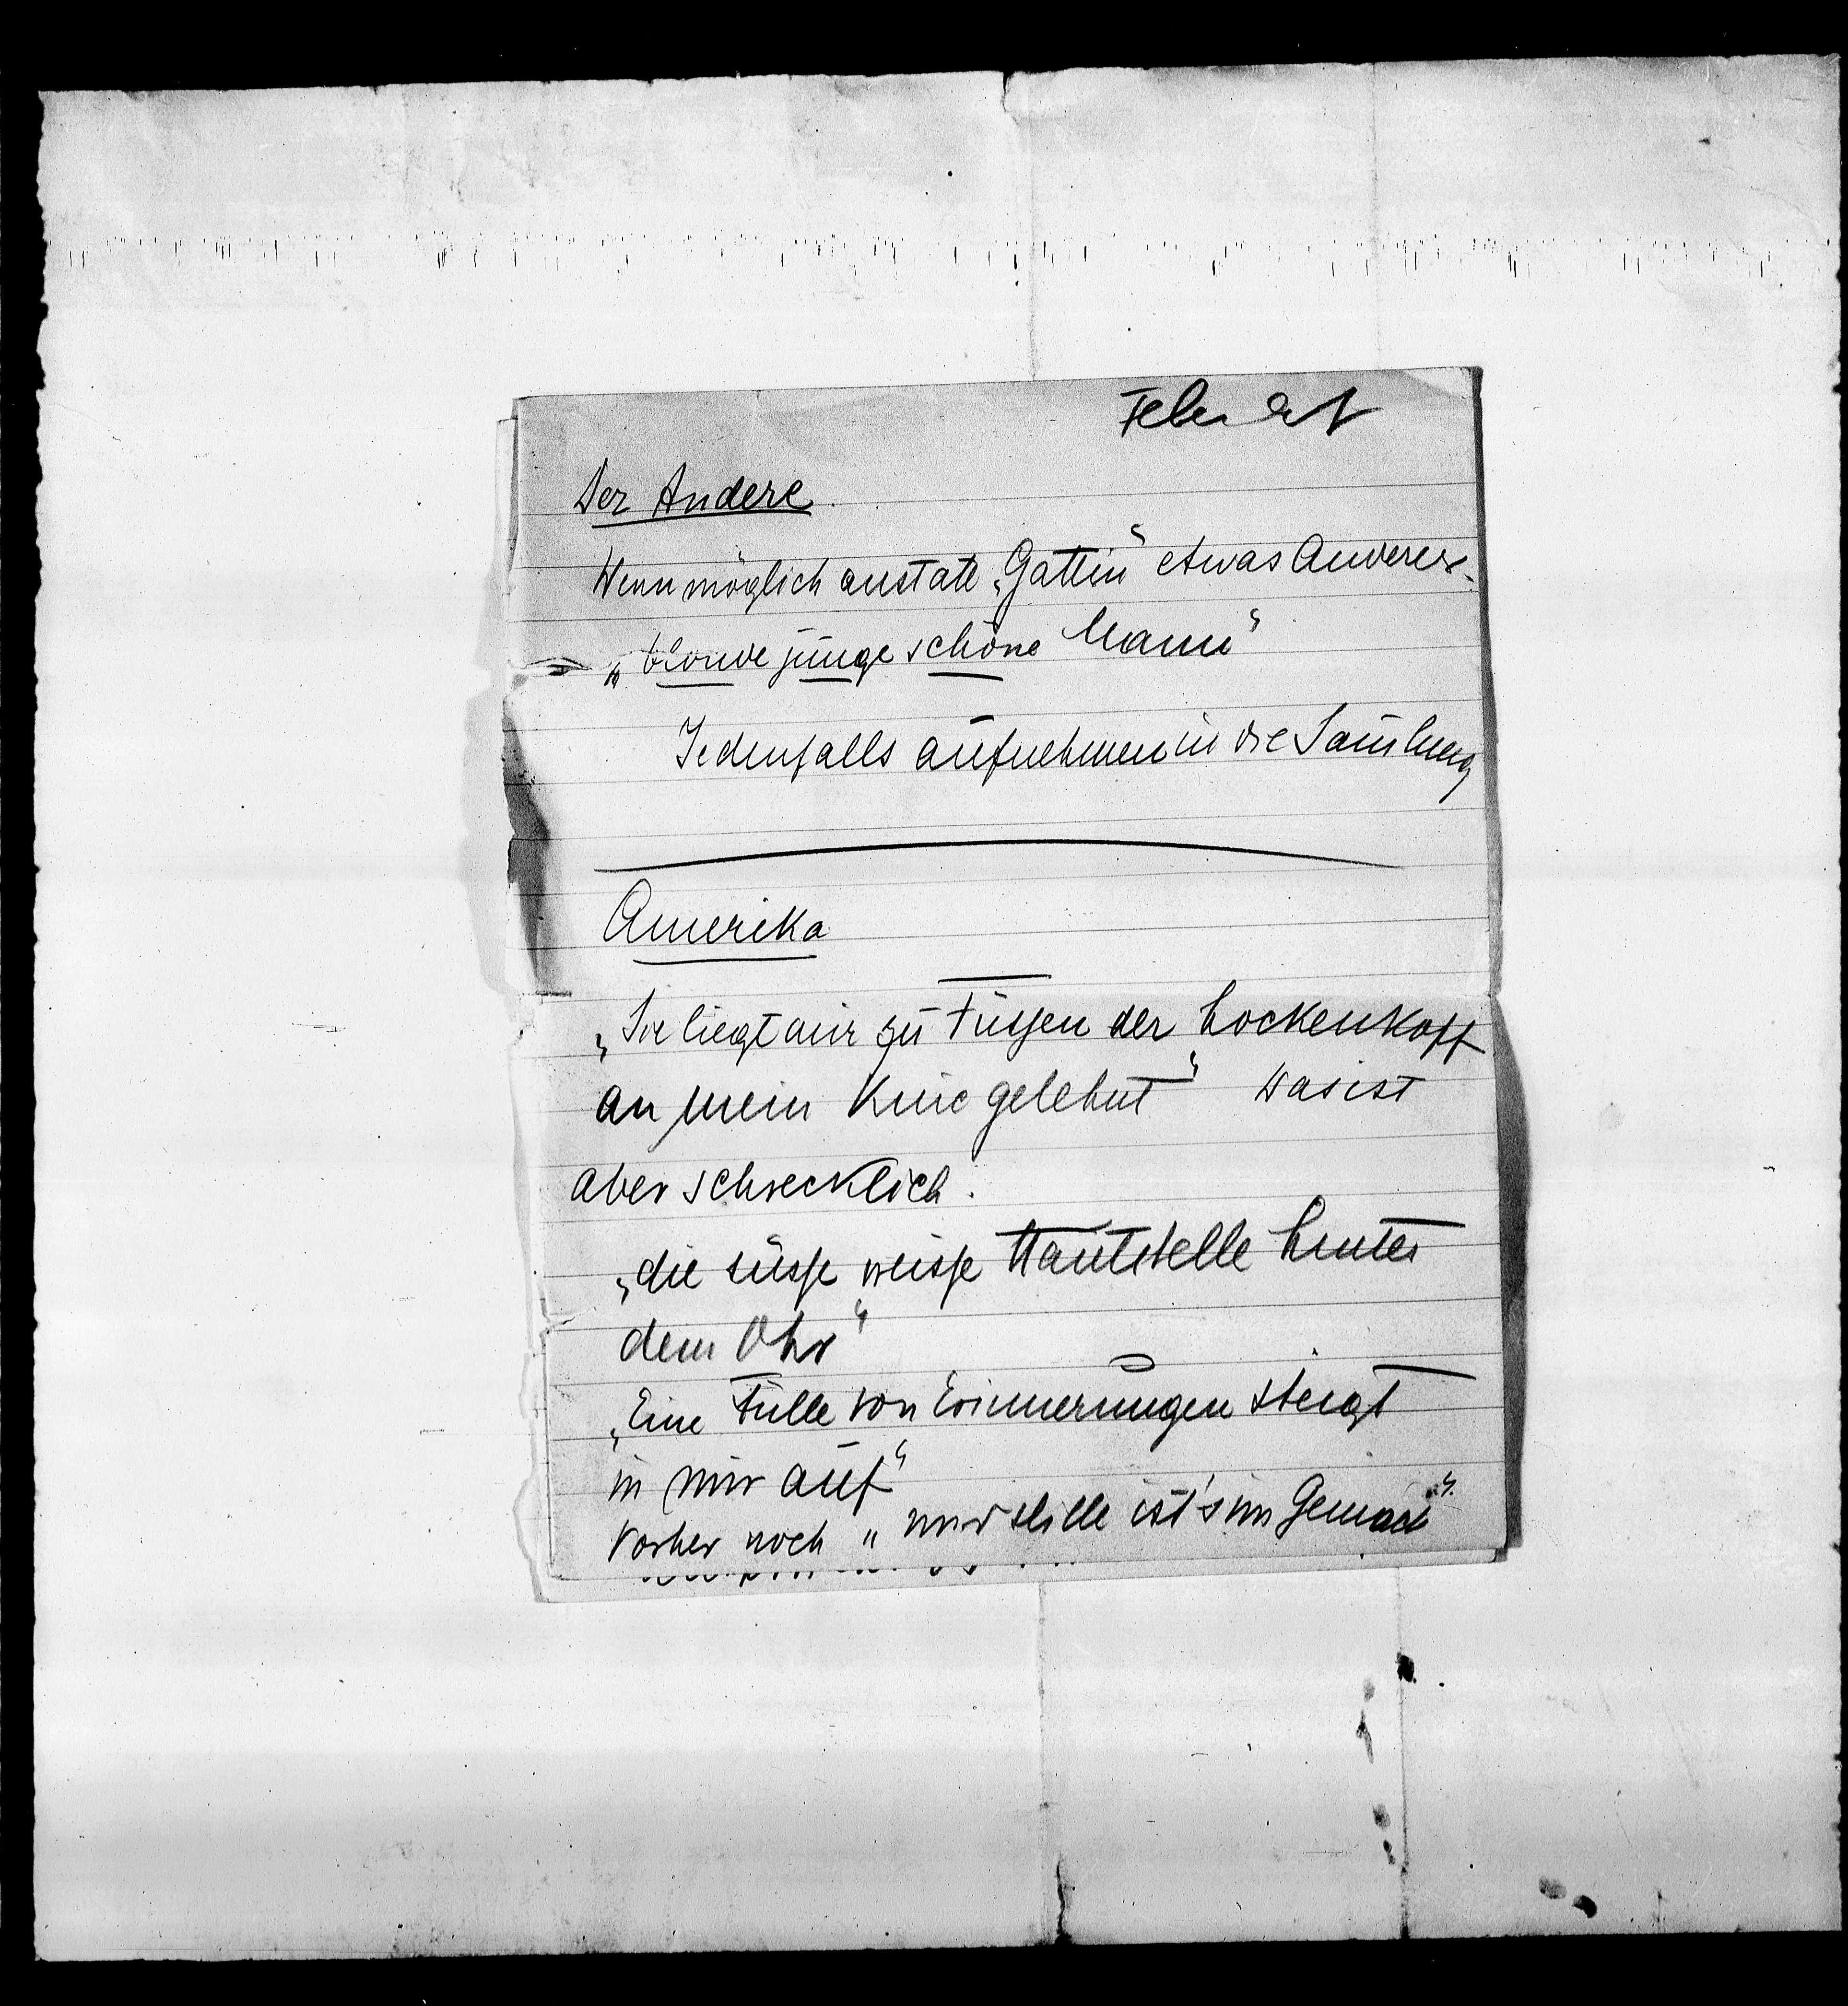 Feber 21
Der Andere.
Wenn möglich anstatt „Gattin“ etwas Anderes.
„blonde junge schöne Mann“
Jedenfalls aufnehmen in die Samlung
Amerika
„Sie liegt mir zu Füssen der Lockenkopf
an mein Knie gelehnt“ Das ist
aber schrecklich.
„die süsse weisse Hautstelle hinter
dem Ohr“
„Eine Fülle von Erinnerungen steigt
in mir auf“
Vorher noch „ und stille ist's im Gemach“.